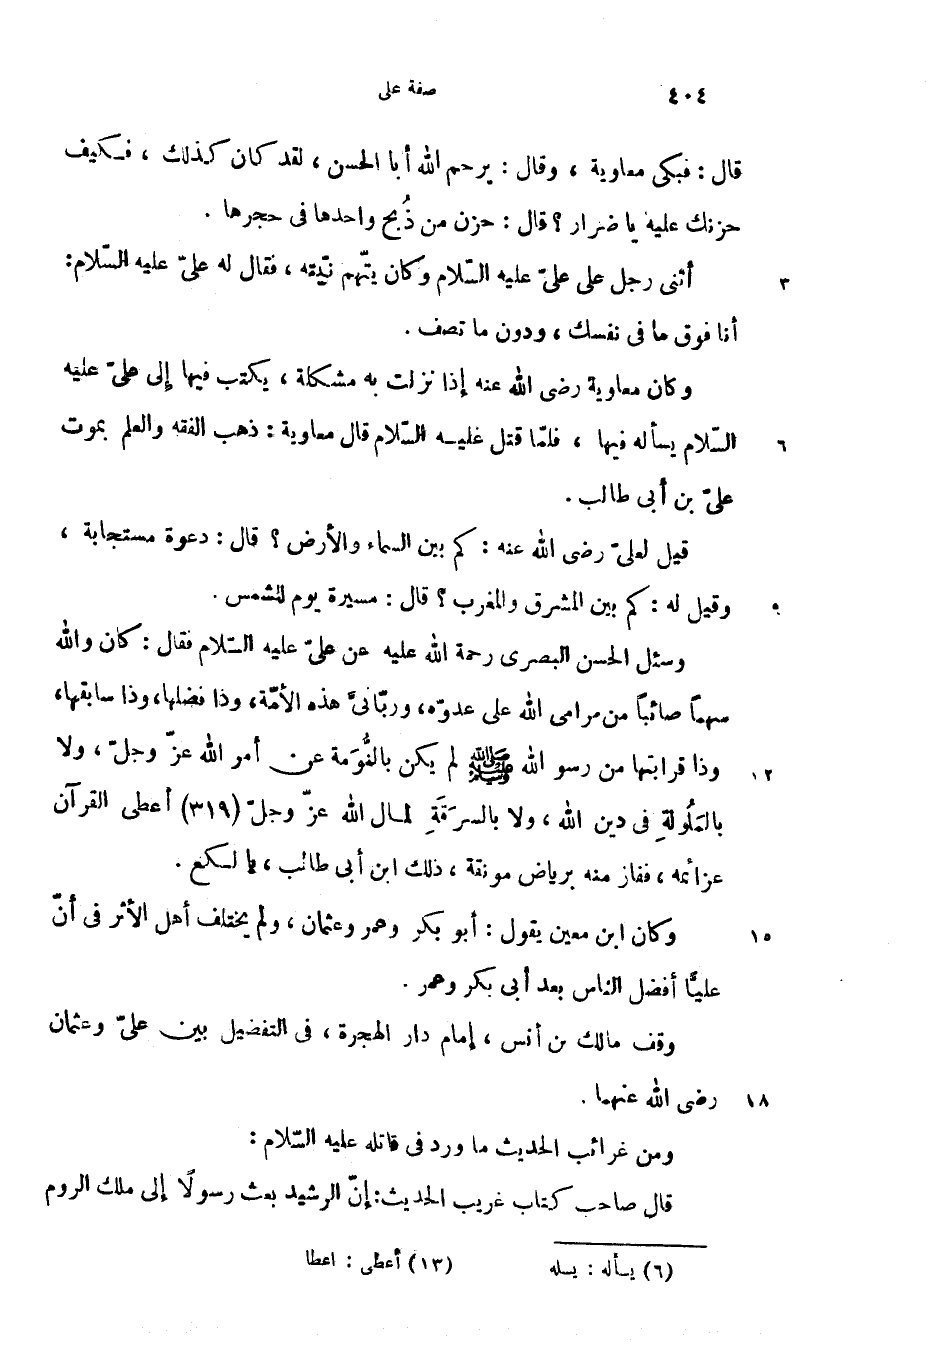 ٤٠٤ صفة على
قال : فبكى معاوية ، وقال : يرحم الله أبا الحسن ، لقد كان كذلك ، فكيف
حزنك عليه يا ضرار ؟ قال : حزن من ذُبح واحدها فى حجرها .
٣ أثنى رجل على علىّ عليه السّلام وكان يتّهم نيّته ، فقال له علىّ عليه السّلام :
أنا فوق ما فى نفسك ، ودون ما تصف .
وكان معاوية رضى الله عنه إذا نزلت به مشكلة ، يكتب فيها إلى علىّ عليه
٦ السّلام يسأله فيها ، فلمّا قتل عليه السّلام قال معاوية : ذهب الفقه والعلم بموت
علىّ بن أبى طالب .
قيل لعلىّ رضى الله عنه : كم بين السماء والأرض ؟ قال : دعوة مستجابة ،
٩ وقيل له : كم بين المشرق والمغرب ؟ قال : مسيرة يوم للشمس .
وسئل الحسن البصرى رحمة الله عليه عن علىّ عليه السّلام فقال : كان والله
سهماً صائباً من مرامى الله على عدوّه، وربّانىَّ هذه الأمّة، وذا فضلها، وذا سابقها،
١٢ وذا قرابتها من رسو الله ﷺ لم يكن بالنُّوَمة عن أمر الله عزّ وجلّ ، ولا
بالمَلُولةِ فى دين الله ، ولا بالسرَقَةِ لمال الله عزّ وجلّ (٣١٩) أعطى القرآن
عزائمه ، ففاز منه برياض مونقة ، ذلك ابن أبى طالب ، يا لكع .
١٥ وكان ابن معين يقول : أبو بكر وعمر وعثمان ، ولم يختلف أهل الأثر فى أنّ
عليًّا أفضل الناس بعد أبى بكر وعمر .
وقف مالك بن أنس ، إمام دار الهجرة ، فى التفضيل بين علىّ وعثمان
١٨ رضى الله عنهما .
ومن غرائب الحديث ما ورد فى قاتله عليه السّلام :
قال صاحب كتاب غريب الحديث: إنّ الرشيد بعث رسولًا إلى ملك الروم
(٦) يسأله : يسله (١٣) أعطى : اعطا